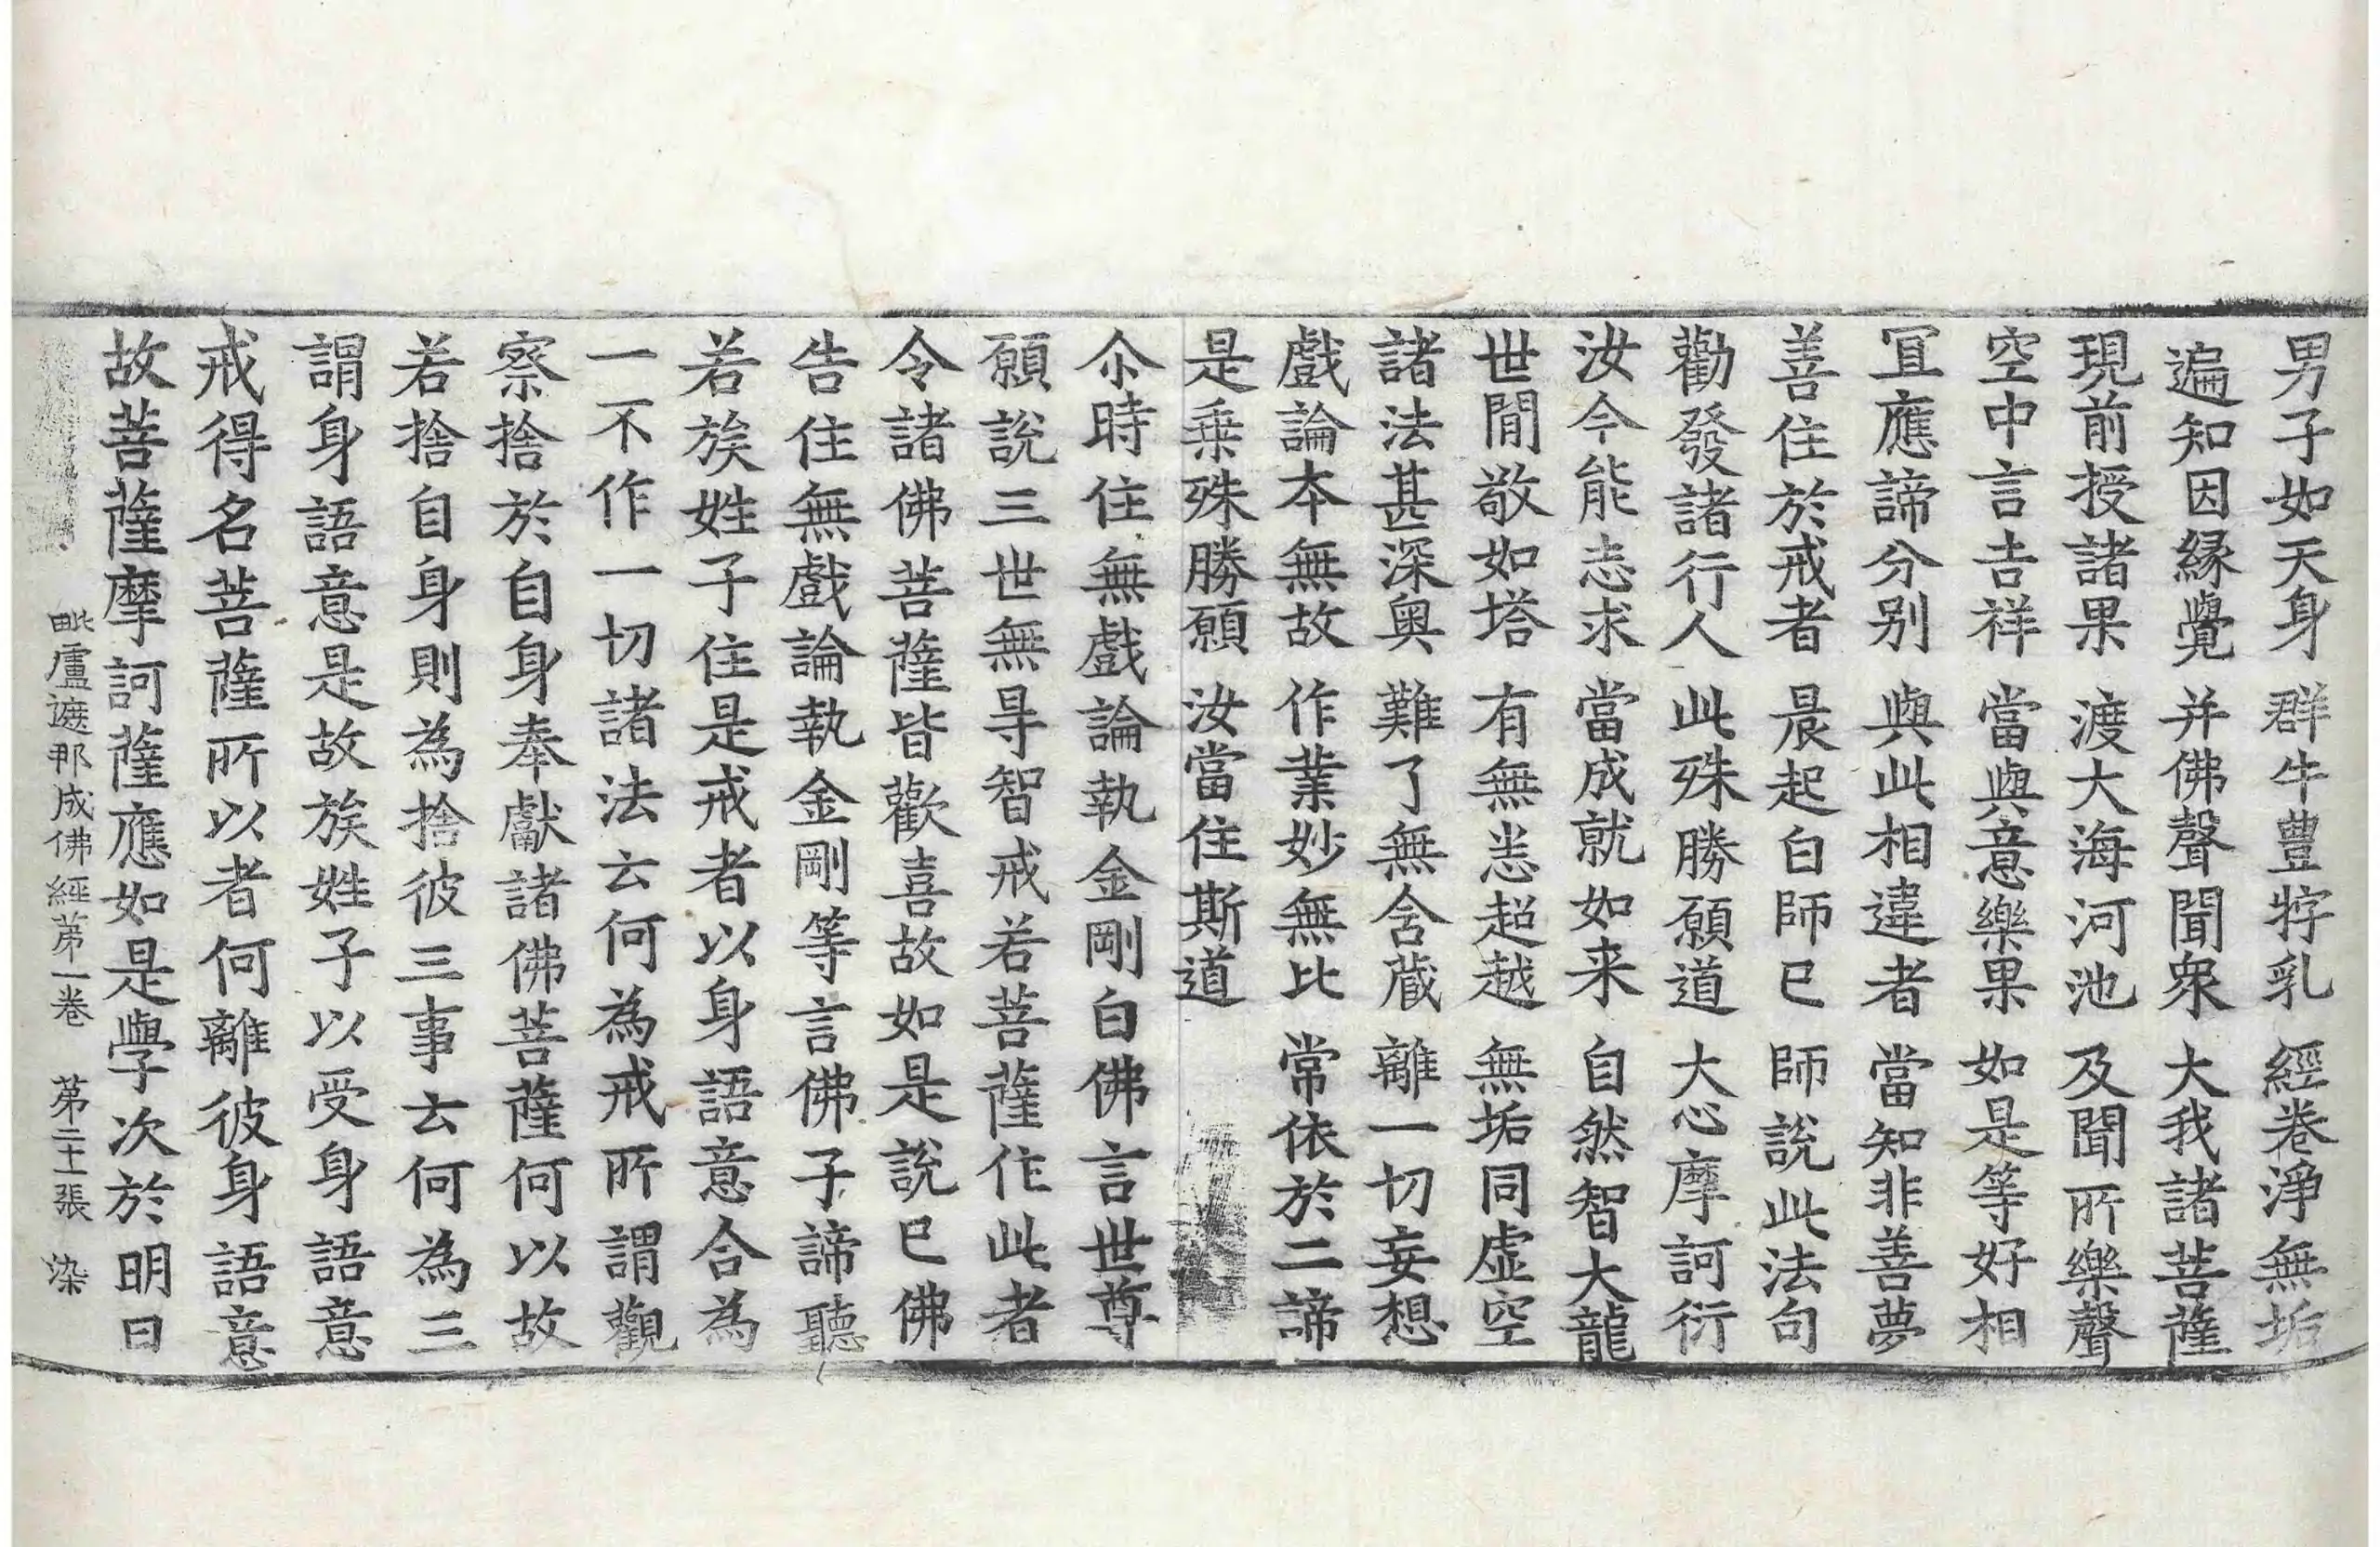 男子如天身 群牛豊牸乳 經卷淨無垢
遍知因縁覺 并佛聲聞衆 大我諸菩薩
現前授諸果 渡大海河池 及聞所樂聲
空中言吉祥 當與意樂果 如是等好相
冝應諦分别 與此相違者 當知非善夢
善住於戒者 晨起白師已 師說此法句
勸發諸行人 此殊勝願道 大心摩訶衍
汝今能志求 當成就如来 自然智大龍
世間敬如塔 有無悉超越 無垢同虚空
諸法甚深奥 難了無含蔵 離一切妄想
戲論夲無故 作業妙無比 常依於二諦
是乗殊勝願 汝當住斯道
尒時住無戲論執金剛白佛言世尊
願說三世無㝵智戒若菩薩住此者
令諸佛菩薩皆歡喜故如是說已佛
告住無戲論執金剛等言佛子諦聽
若族姓子住是戒者以身語意合為
一不作一切諸法云何為戒所謂觀
察捨於自身奉獻諸佛菩薩何以故
若捨自身則為捨彼三事云何為三
謂身語意是故族姓子以受身語意
戒得名菩薩所以者何離彼身語意
故菩薩摩訶薩應如是學次於明日
毗盧遮那成佛經苐一卷 苐二十一張 染